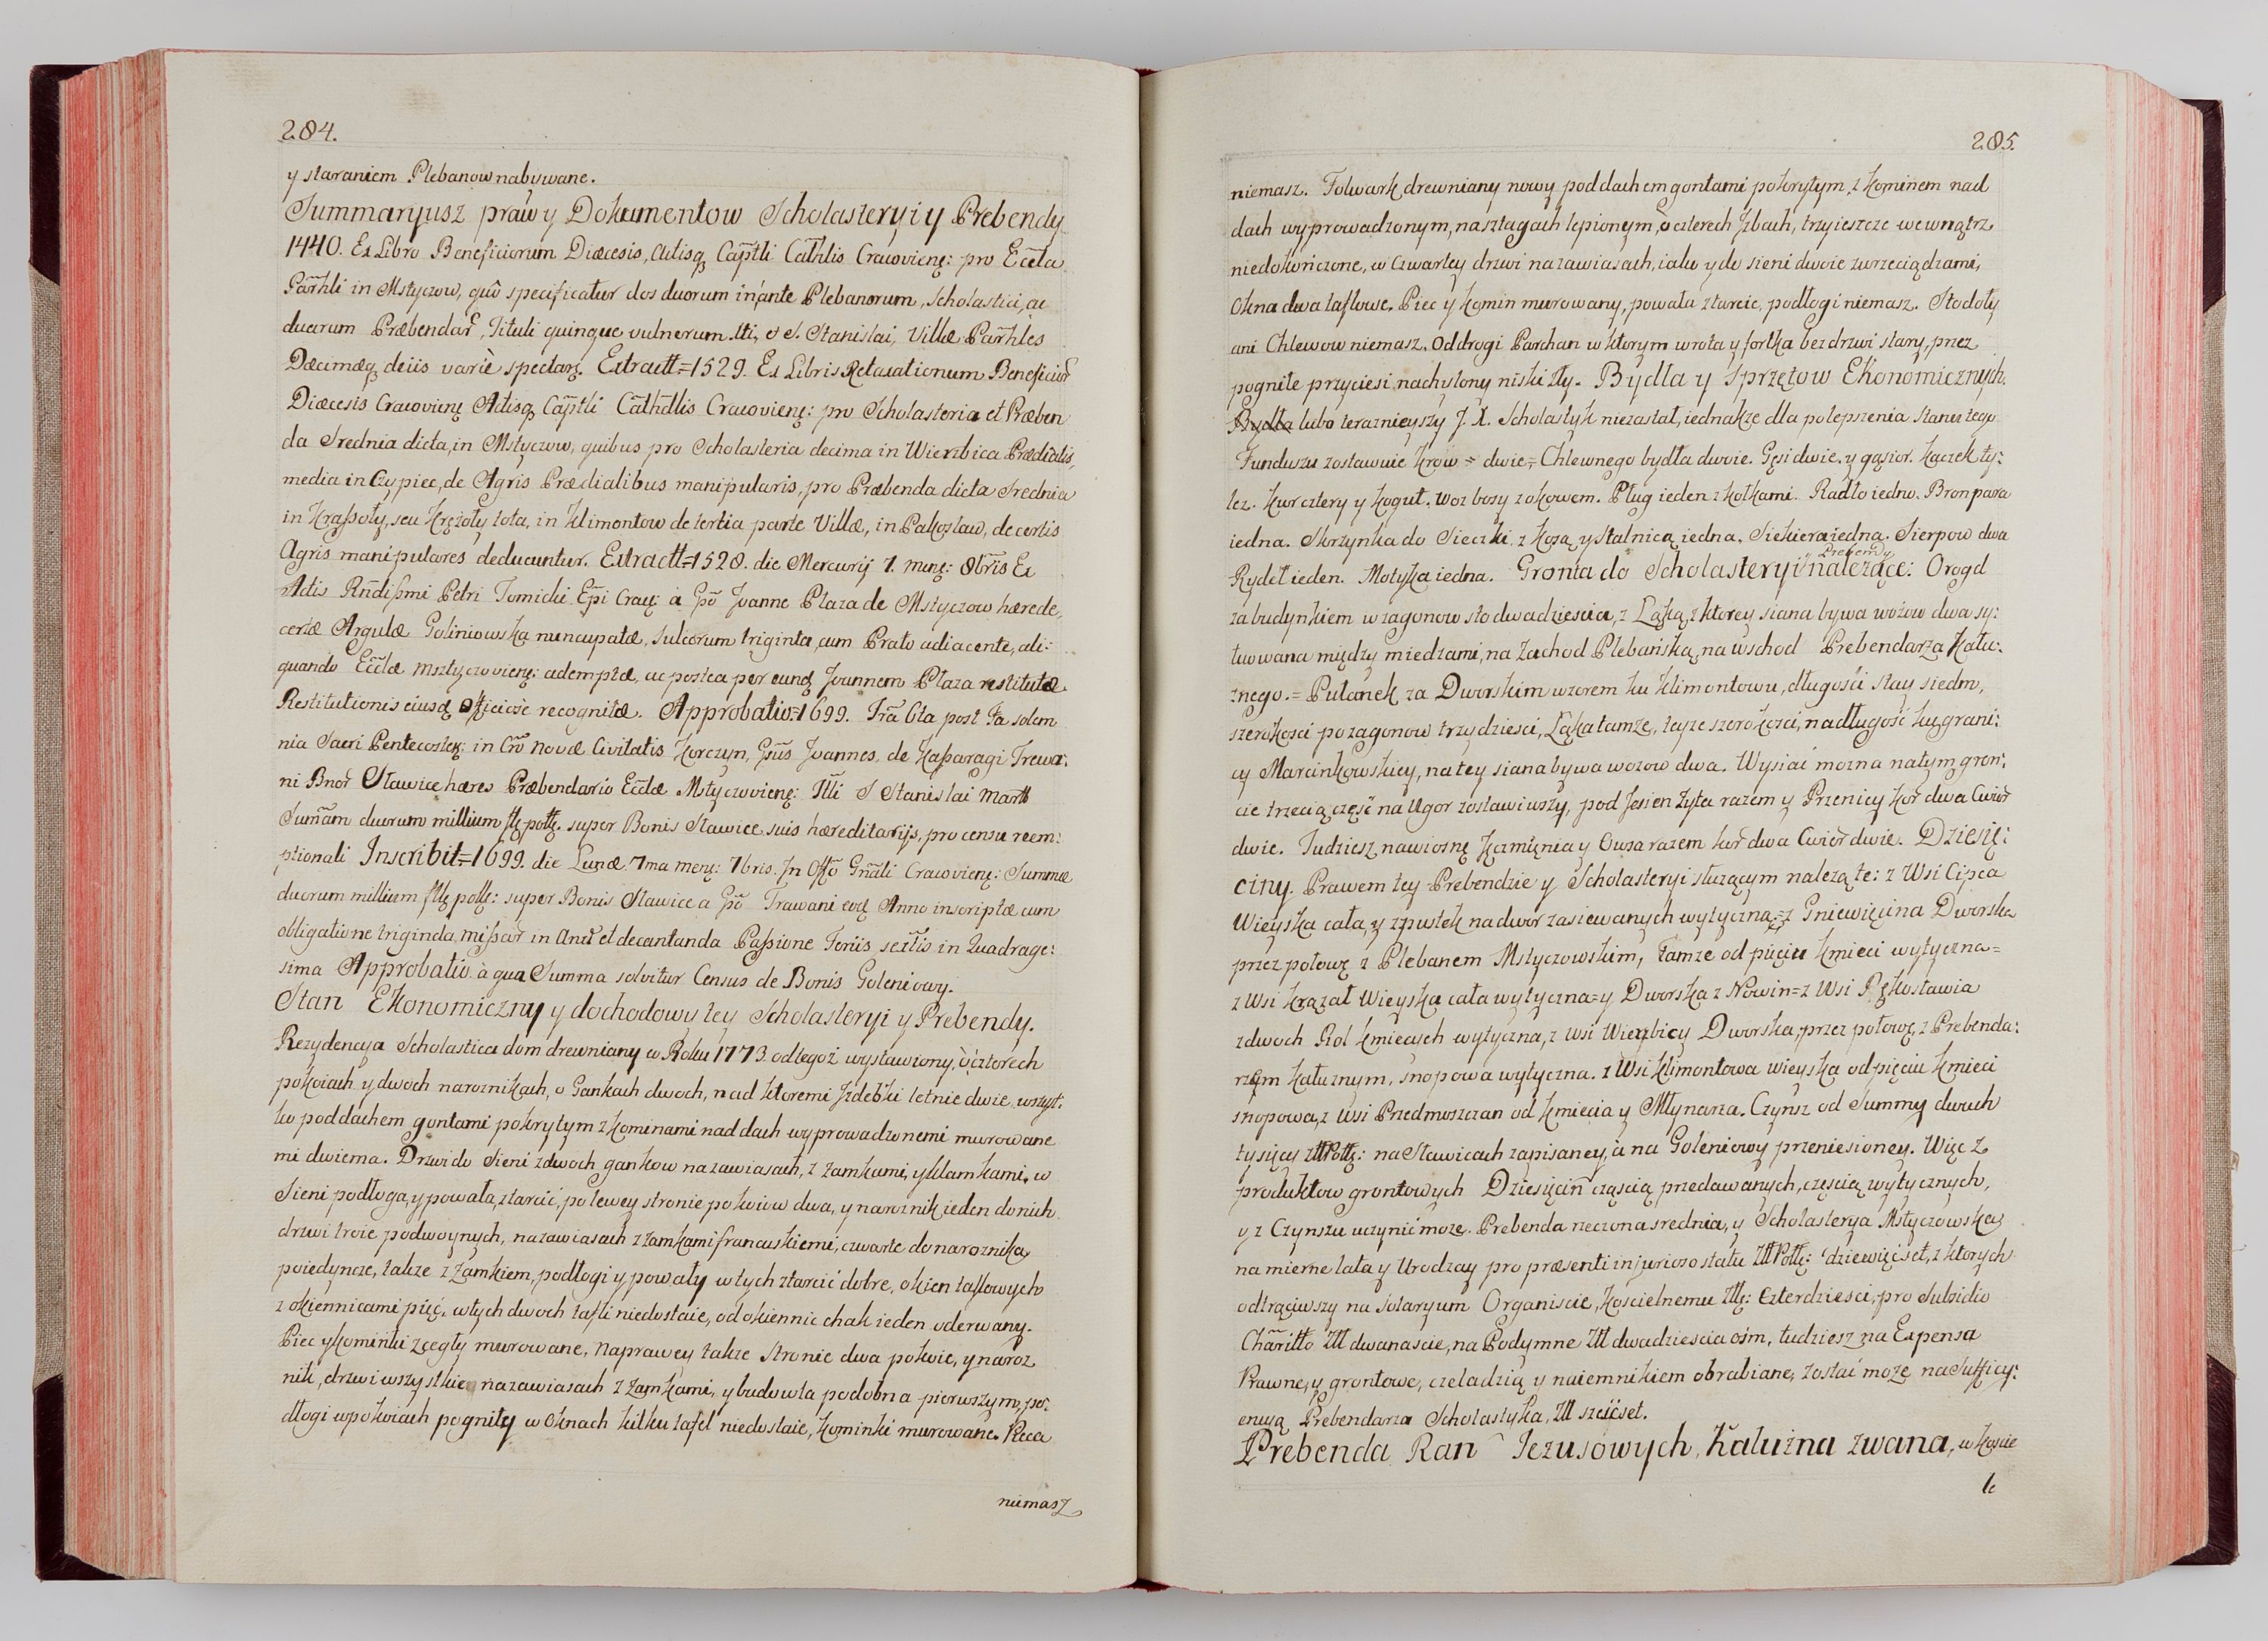 284.
y staraniem Plebanow nabywane.
Summaryusz praw y Dokumentow Scholasteryi y Prebendy
1440. Ex Libro Beneficiorum Diæcesis, Actisq Capĩtli Cathlis Cracovienę: pro Eccla
Parhli in Mstyczow, quo specificatur dos duorum in ante Plebanorum, Scholastici, ac
duarum Præbendar, Tituli quinque vulnerum. tti, et S. Stanislai, Villæ Parhles
Dæcimæq deiis varie spectan. Extractt=1529. Ex Libris Retaxationum Beneficior
Diæcesis Cracovienę Actisq Capĩtli Cathdlis Cracovienę: pro Scholasteria et Præben
da Srednia dicta, in Mstyczow, quibus pro Scholasteria decima in Wierzbica Prædialis,
media in Czypiec, de Agris Prædialibus manipularis, pro Præbenda dicta Srednia
in Kraſsoły, seu Krężoły tota, in Klimontow de tertia parte Villæ, in Pakosław, de certis
Agris manipulares deducuntur. Extractt=1528. die Mercurij 7. menę: Obris Ex
Actis Rndiſsmi Petri Tomicki Epi Cracę a Gso Joanne Płaza de Mstyczow hærede,
certæ Argulæ Goliniowska nuncupatæ, sulcorum triginta, cum Prato adiacente, ali:
quando Eccłæ Msztyczovienę: ademptæ, ac postea per eundę Joannem Płaza restitutæ
Restitutionis eiusdę Officiose recognitæ. Approbatio=1699. Fra 6ta post Fa solem
nia Sacri Pentecostę: in Cro Novæ Civitatis Korczyn, Gsus Joannes, de Kaſsaragi Trewa:
ni Bnor Sławice hæres Præbendario Eccłæ Mstyczovienę: Ttli S Stanislai Martt
Summam duorum millium flę pollę. super Bonis Sławice suis hæreditarijs, pro censu reem:
ptionali Inscribit=1699. die Lunæ 7ma menę: 7bris. In Offo Gnali Cracovienę: Summæ
duorum millium flę pollę: super Bonis Sławice a Gso Trawani eodę Anno inscriptæ cum
obligatione triginda miſsar in Anno et decantanda Paſsione Feriis sextis in Quadrage:
sima Approbatio. à qua Summa solvitur Census de Bonis Goleniowy.
Stan Ekonomiczny y dochodowy tey Scholasteryi y Prebendy.
Rezydencya Scholastica dom drewniany w Roku 1773. odtegoż wystawiony, o czterech
pokoiach y dwoch naroznikach, o Gankach dwoch, nad ktoremi Jzdebki letnie dwie, wszyst:
ko pod dachem gontami pokrytym z kominami nad dach wyprowadzonemi murowane
mi dwiema. Drzwi do Sieni z dwoch gankow na zawiasach, z zamkami, y klamkami, w
Sieni podłoga, y powała, z tarcić, po lewey stronie pokoiow dwa, y naroznik ieden do nich
drzwi troie podwoynych, na zawiasach z zamkami francuskiemi, czwarte do naroznika
poiedyncze, takze z zamkiem, podłogi y powały w tych z tarcić dobre, okien taflowych
z okiennicami pięć, w tych dwoch tafli niedostaie, od okiennic chak ieden oderwany.
Piec y kominki z cegły murowane, Naprawey takze stronie dwa pokoie, y naroz
nik, drzwi wszystkie na zawiasach z zamkami, y budowla podobna pierwszym, po:
dłogi w pokoiach pogniły w oknach kilku tafel niedostaie, kominki murowane. Pieca
niemasz
285.
niemasz. Folwark drewniany nowy pod dachem gontami pokrytym, z kominem nad
dach wyprowadzonym, na sztagach lepionym, o czterech Jzbach, trzy ieszcze wewnątrz
niedokończone, w Czwartey drzwi na zawiasach, iako y do sieni dwoie z wrzeciądzami,
Okna dwa taflowe. Piec y komin murowany, powała z tarcic, podłogi niemasz. Stodoły
ani Chlewow niemasz. Od drogi Parchan w ktorym wrota y fortka bez drzwi stary, przez
pogniłe przyciesi, nachylony niski zły. Bydła y Sprzętow Ekonomicznych.
Bydła lubo teraznieyszy J. X. Scholastyk niezastał, iednakze dla polepszenia stanu tego
Funduszu zostawuie Krow = dwie = Chlewnego bydła dwoie. Gęsi dwie, y gąsior. Kaczek ty:
lez. Kur cztery y kogut. Woz bosy z okowem. Pług ieden z kołkami. Radło iedno. Bron para
iedna. Skrzynka do Sieczki z kosą y stalnicą iedna. Siekiera iedna. Sierpow dwa
Rydel ieden. Motyka iedna. Gronta do Scholasteryi y Prebendy nalezące: Orogd
za budynkiem w zagonow sto dwadziescia, z Łąką, z ktorey siana bywa wozow dwa sy:
tuowana między miedzami, na Zachod Plebańską, na wschod Prebendarza Kału:
znego. = Pułanek za Dworskim wzorem ku Klimontowu, długości stay siedm,
szerokosci po zagonow trzydziesci, Łąka tamze, teyze szerokosci, na długość ku grani:
cy Marcinkowskiey, na tey siana bywa wozow dwa. Wysiać mozna na tym gron:
cie trzecią część na Ugor zostawiwszy, pod Jesien Zyta razem y Przenicy kor dwa Cwier
dwie. Tudziesz na wiosnę Jęczmienia y Owsa razem kor dwa Cwier dwie. Dziesię:
ciny. Prawem tey Prebendzie y Scholasteryi słuzącym nalezą te: z Wsi Cipca
Wieyska cała, y z pustek na dwor zasiewanych wytyczna = z Gniewięcina Dworska
przez połowę z Plebanem Mstyczowskim, tamze od pięciu kmieci wytyczna =
z Wsi Krązał Wieyska cała wytyczna = y Dworska z Nowin = z Wsi Pękosławia
z dwoch Rol kmiecych wytyczna, z Wsi Wierzbicy Dworska, przez połowę, z Prebenda:
rzem kałuznym, snopowa wytyczna. z Wsi Klimontowa wieyska od pięciu kmieci
snopowa, z Wsi Przedmoszczan od kmiecia y Młynarza. Czynsz od Summy dwuch
tysięcy złł Pollę: na Sławicach zapisaney, a na Goleniowy przeniesioney. Więc z
produktow grontowych Dziesięcin częścią przedawanych, częścią wytycznych,
y z Czynszu uczynić moze. Prebenda rzeczona srednia, y Scholasterya Mstyczowska
na mierne lata y Urodzay pro præsenti injurioso statu złł Pollę: dziewięćset, z ktorych
odtrąciwszy na Solaryum Organiscie, Koscielnemu złłę: Czterdziesci, pro Subsidio
Charitto złł dwanascie, na Podymne złł dwadziescia ośm, tudziesz na Expensa
Prawne, y grontowe, czeladzią y naiemnikiem obrabiane, zostać może na Sufficy:
encyą Prebendarza Scholastyka, złł sześćset.
Prebenda Ran Jezusowych, Kałuzna zwana, w Kosciele
le